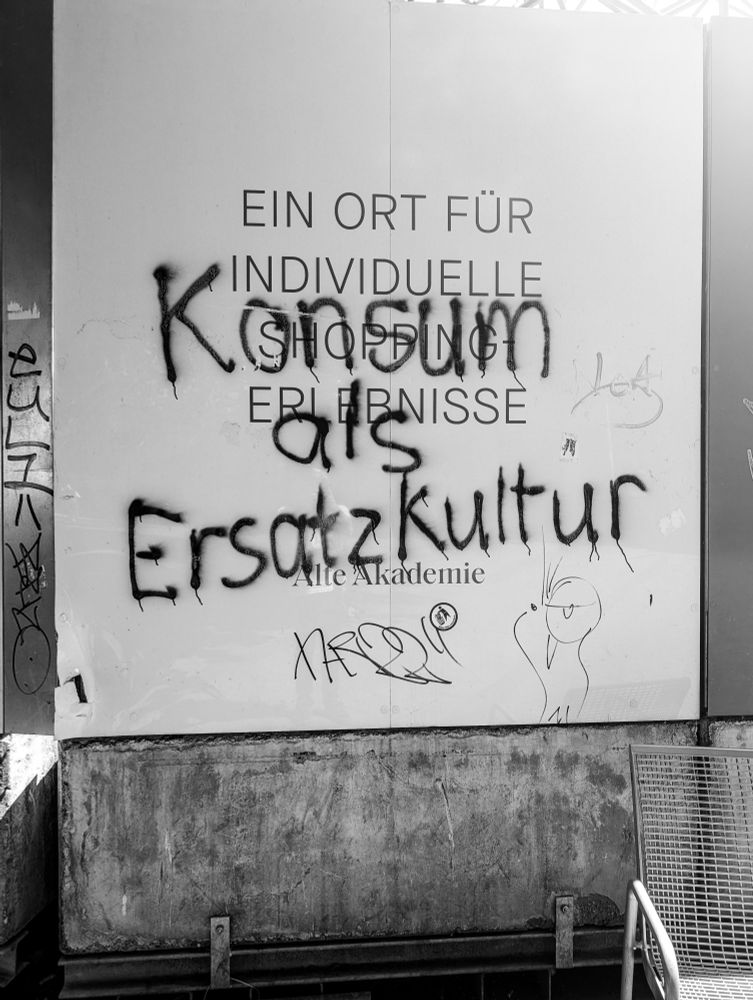 EIN ORT FÜR
INDIVIDUELLE
SHOPPING-
ERLEBNISSE
Konsum
als
Ersatzkultur
Alte Akademie